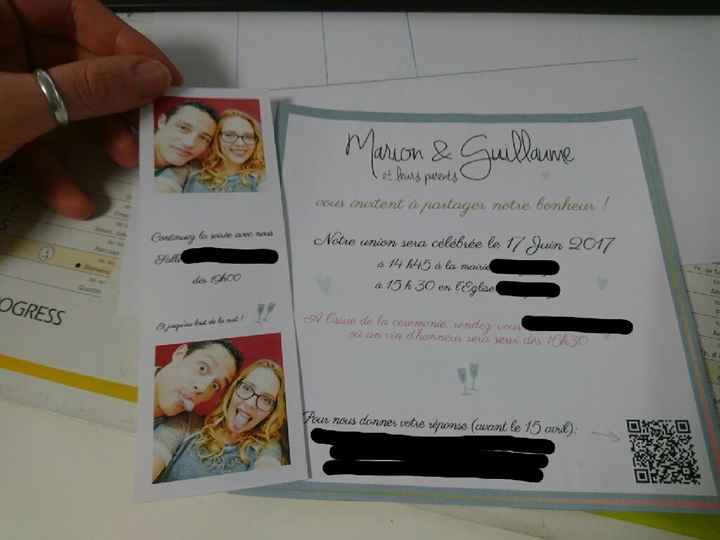 Continuez la soirée avec nous
Salle
dès 19h00
Et jusqu'au bout de la nuit !
Marion & Guillaume
et leurs parents
vous invitent à partager notre bonheur !
Notre union sera célébrée le 17 Juin 2017
à 14 h45 à la mairie
à 15 h 30 en l'Eglise
A l'issue de la ceremonie, rendez vous
où un vin d'honneur sera servi dès 16h30
Pour nous donner votre réponse (avant le 15 avril):
OGRESS